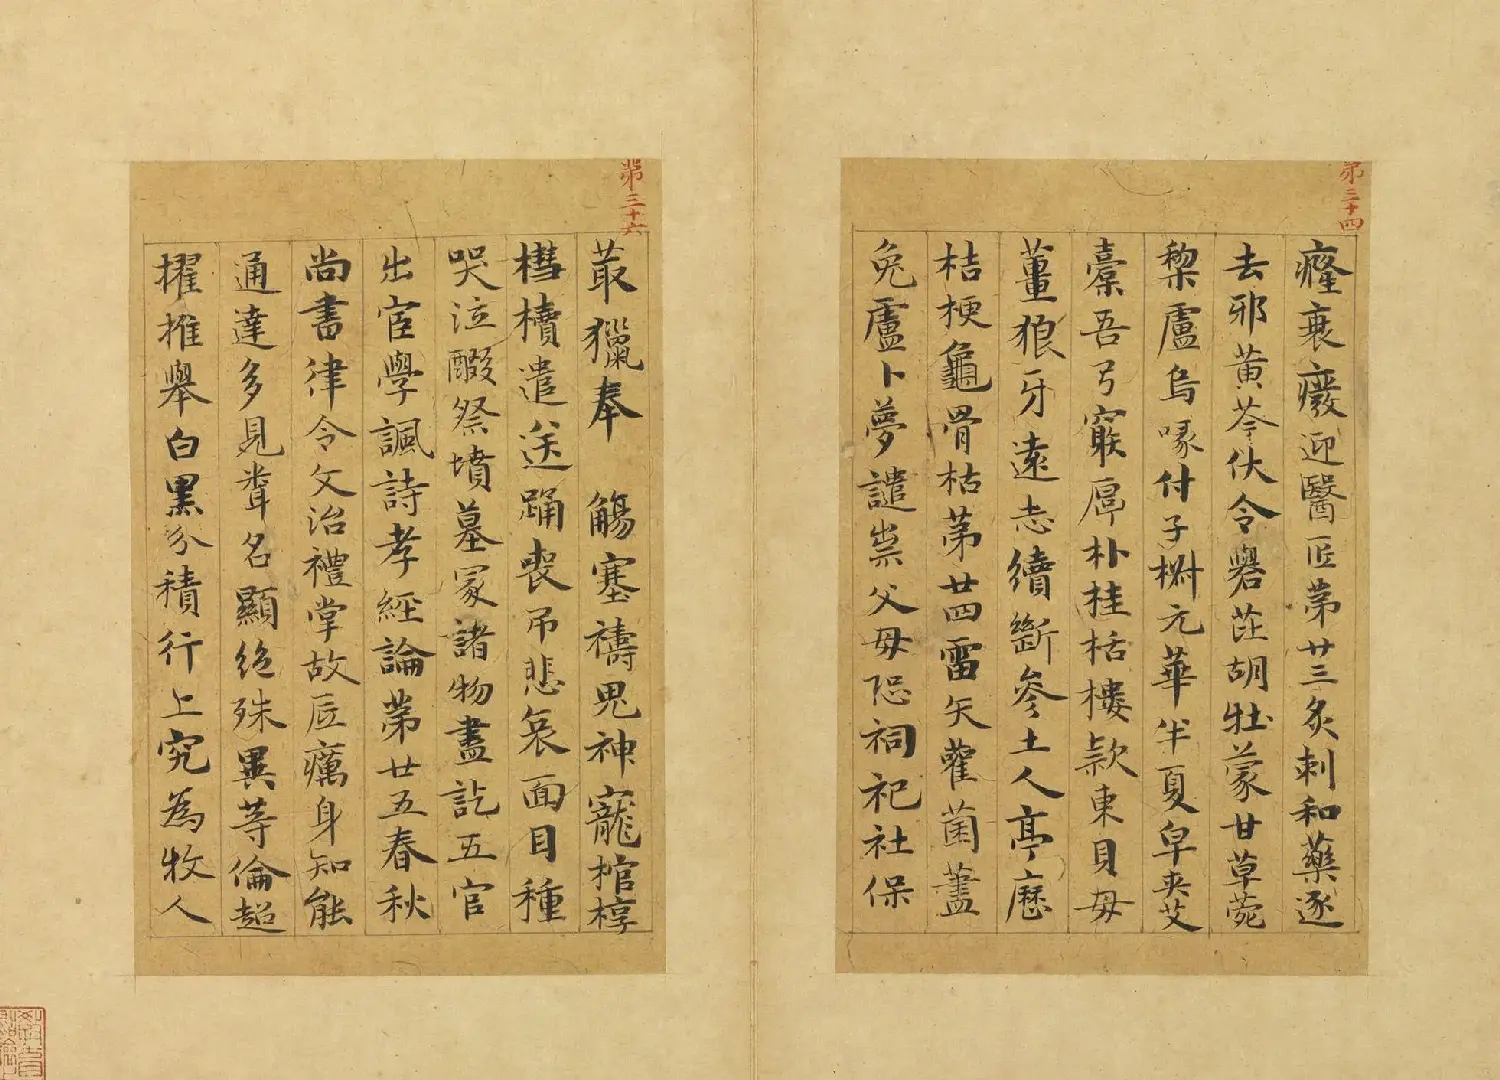 第三十四
癃衰癈迎醫匠苐廿三灸刺和藥逐
去邪黄芩伏令礜茈胡牡蒙甘草菀
棃盧烏喙付子椒元華半夏皁夾艾
橐吾弓窮厚朴桂栝樓款東貝母
薑狼牙遠志續斷參土人亭歷
桔梗龜骨枯苐廿四雷矢雚菌藎
兔盧卜夢譴祟父母恐祠祀社保
第三十六
菆獵奉 觴塞禱鬼神寵棺椁
槥櫝遣送踊喪吊悲哀面目種
哭泣醊祭墳墓冢諸物盡訖五官
出宦學諷詩孝經論苐廿五春秋
尚書律令文治禮掌故匠厲身知能
通達多見聲名顯絶殊異等倫超
擢推舉白黑分積行上究為牧人